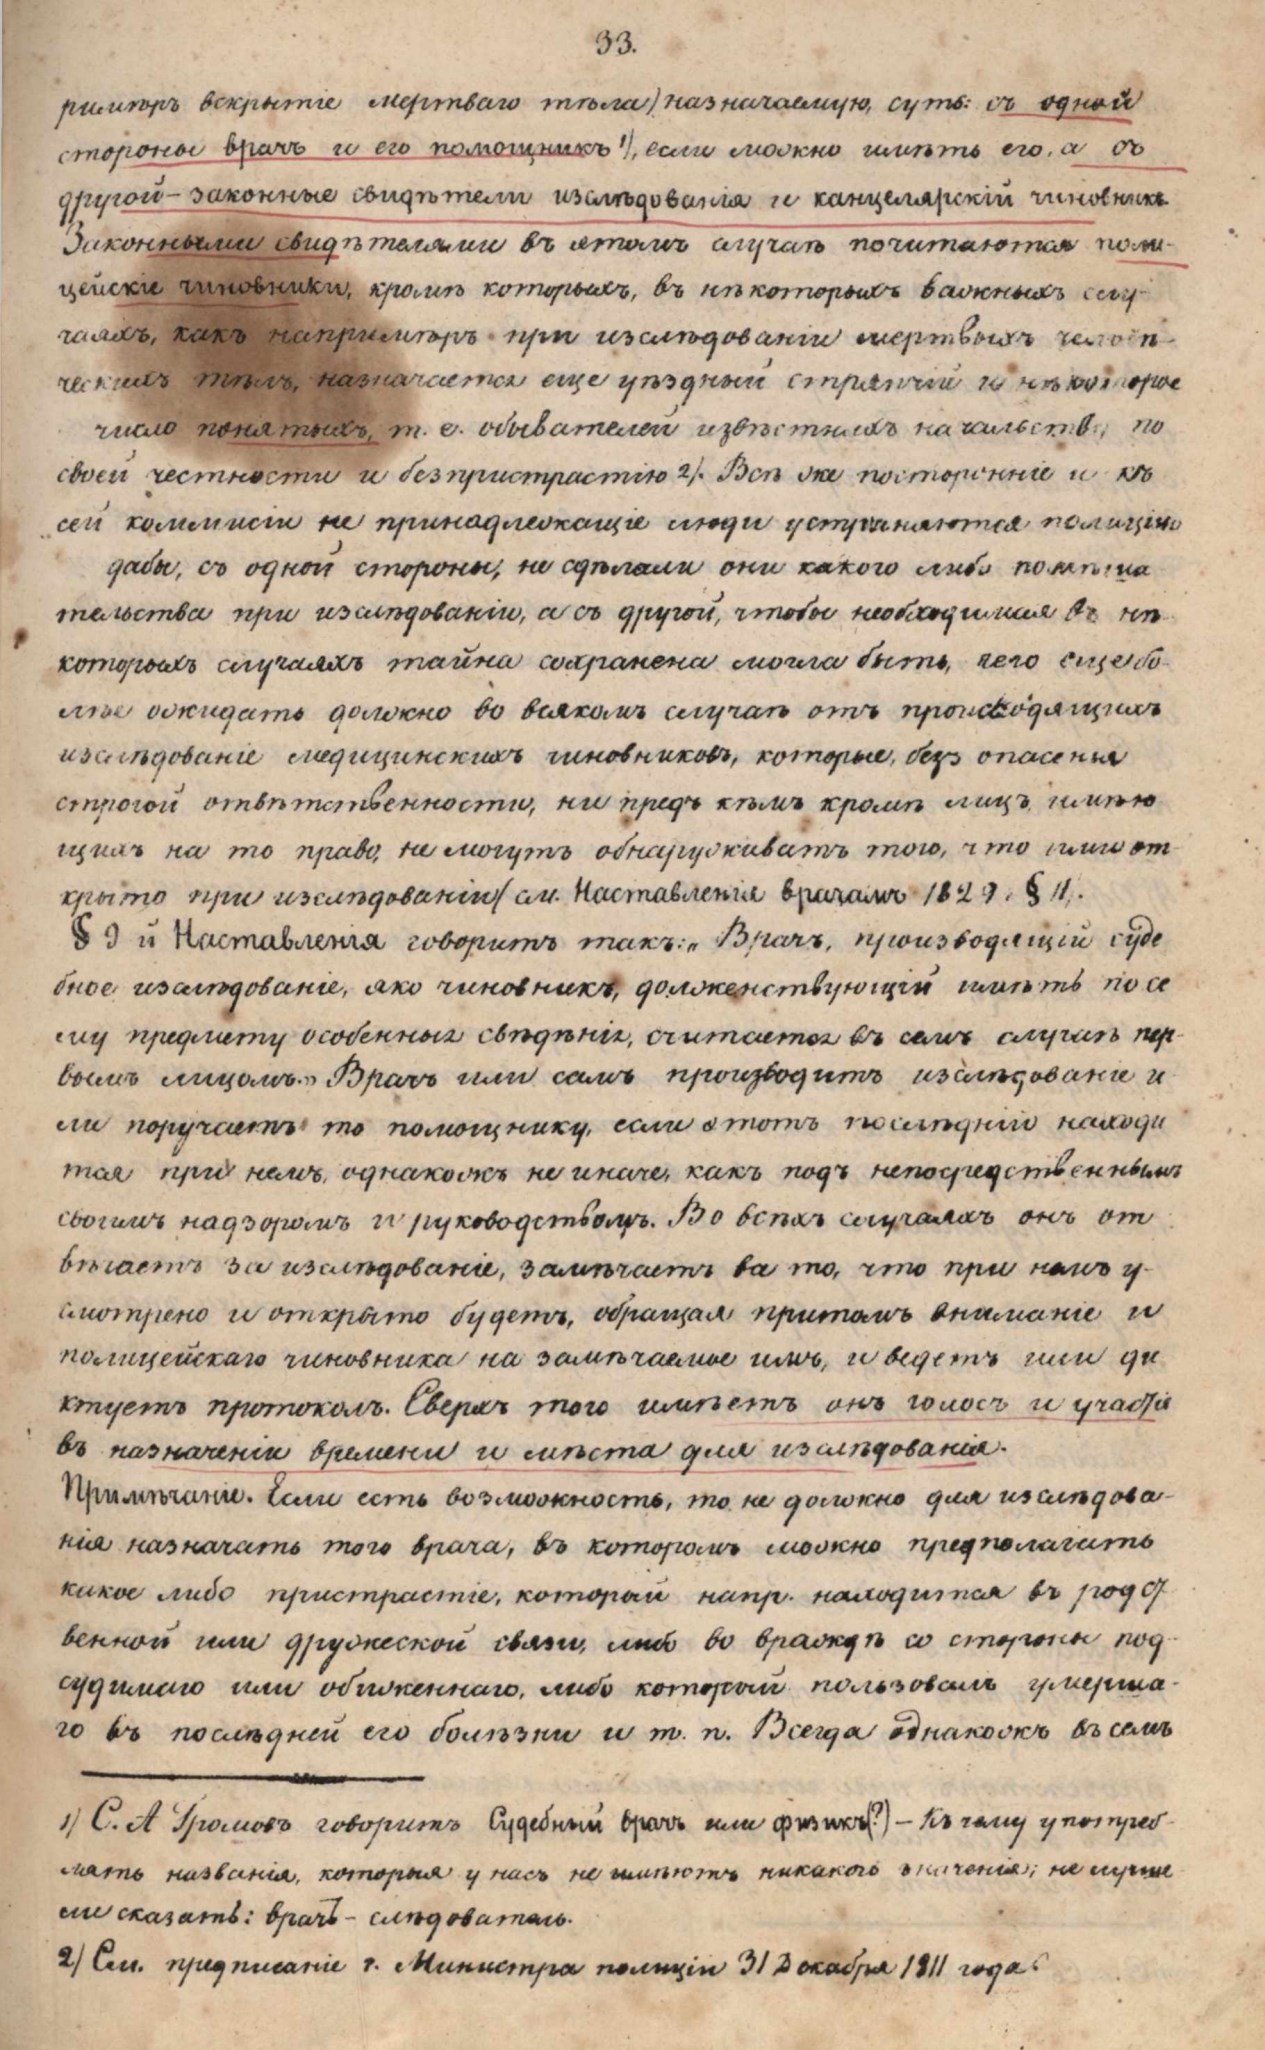 33.
римѣръ вскрытіе мертваго тѣла) назначаемую, суть: съ одной
стороны врачъ и его помощникъ 1), если можно имѣть его, а съ
другой - законные свидѣтели изслѣдованія и канцелярскій чиновникъ
Законными свидѣтелями въ этомъ случаѣ почитаются поли-
цейскіе чиновники, кромѣ которыхъ, въ нѣкоторыхъ важныхъ слу-
чаяхъ, какъ напримѣръ при изслѣдованіи мертвыхъ человѣ-
ческихъ тѣлъ, назначается еще уѣздный стряпчій и нѣкоторое
число понятыхъ, т. е. обывателей извѣстныхъ начальству по
своей честности и безпристрастію 2). Всѣ же посторонніе и къ
сей коммисіи не принадлежащіе люди устраняются полиціею
дабы, съ одной стороны, не сдѣлали они какого либо помѣша
тельства при изслѣдованіи, а съ другой, чтобы необходимая въ нѣ-
которыхъ случаяхъ тайна сохранена могла быть, чего еще бо-
лѣе ожидать должно во всякомъ случаѣ отъ происходящихъ
изслѣдованіе медицинскихъ чиновниковъ, которые, безъ опасенья
строгой отвѣтственности, ни предъ кѣмъ кромѣ лицъ имѣю
щихъ на то право, не могутъ обнаруживать того, что ими от-
крыто при изслѣдованіи (см. Наставленія врачамъ 1829. § 11).
§ 9 й Наставленія говоритъ такъ: „Врачъ, производящій суде
бное изслѣдованіе, яко чиновникъ, долженствующій имѣть по се
му предмету особенныя свѣдѣнія, считается въ семъ случаѣ пер-
вымъ лицомъ.„ Врачъ или самъ производитъ изслѣдованіе и-
ли поручаетъ то помощнику, если этотъ послѣдній находи
тся при немъ, однакожъ не иначе, какъ подъ непосредственнымъ
своимъ надзоромъ и руководствомъ. Во всѣхъ случаяхъ онъ от
вѣчаетъ за изслѣдованіе, замѣчаетъ за то, что при немъ у-
смотрено и открыто будетъ, обращая притомъ вниманіе и
полицейскаго чиновника на замѣчаемое имъ, и ведетъ или ди
ктуетъ протоколъ. Сверхъ того имѣетъ онъ голосъ и участіе
въ назначеніи времени и мѣста для изслѣдованія.
Примѣчаніе. Если есть возможность, то не должно для изслѣдова-
нія назначать того врача, въ которомъ можно предполагать
какое либо пристрастіе, который напр. находится въ родст
венной или дружеской связи, либо во враждѣ со стороны под-
судимаго или обиженнаго, либо который пользовалъ умерша-
го въ послѣдней его болѣзни и т. п. Всегда однакожъ въ семъ
1) С. А Громовъ говоритъ Судебный врачъ или физикъ (?) - Къ чему употреб-
лять названія, которыя у насъ не имѣютъ никакого значенія; не лучше
ли сказать: врачъ - слѣдователь.
2) См. предписаніе г. Министра полиціи 31 Декабря 1811 года.